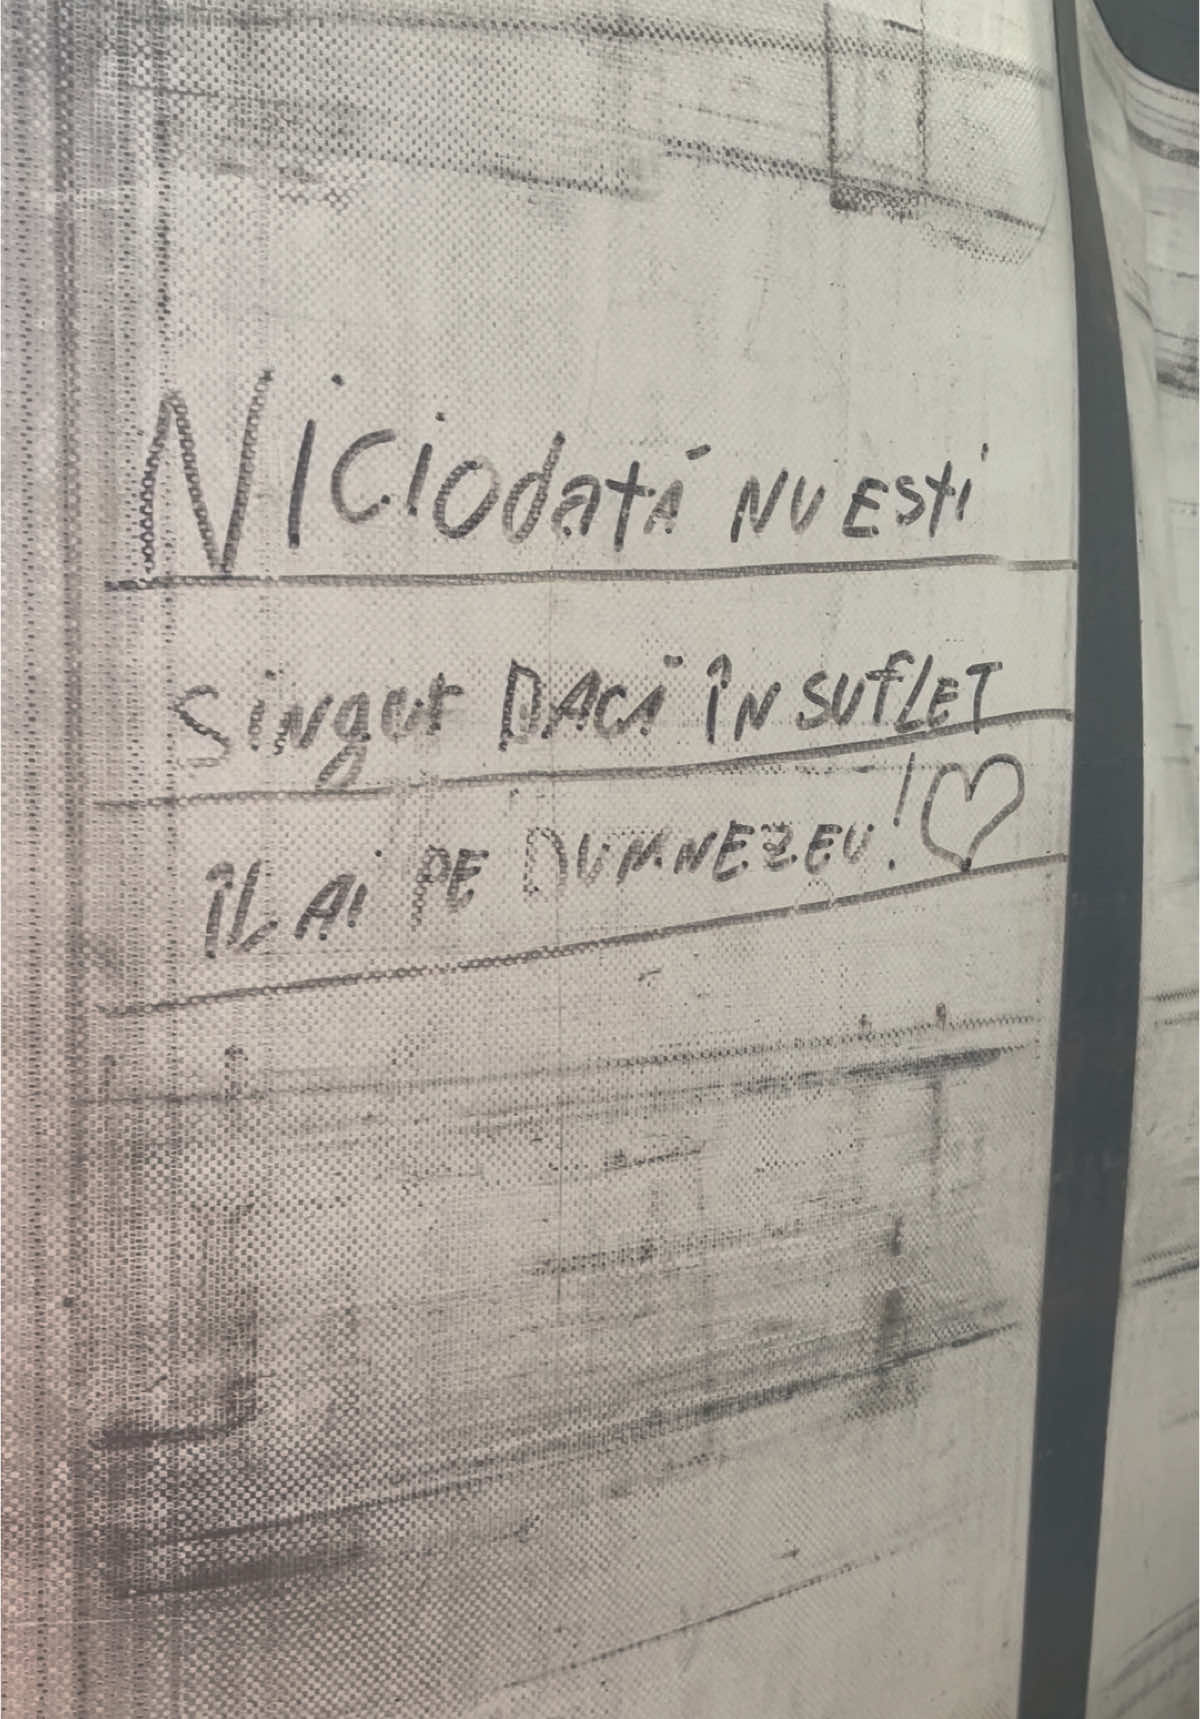 Niciodată NU ESTi
singur DACĂ ÎN SUfLET
ÎL Ai PE DUMNEZEU! ♡